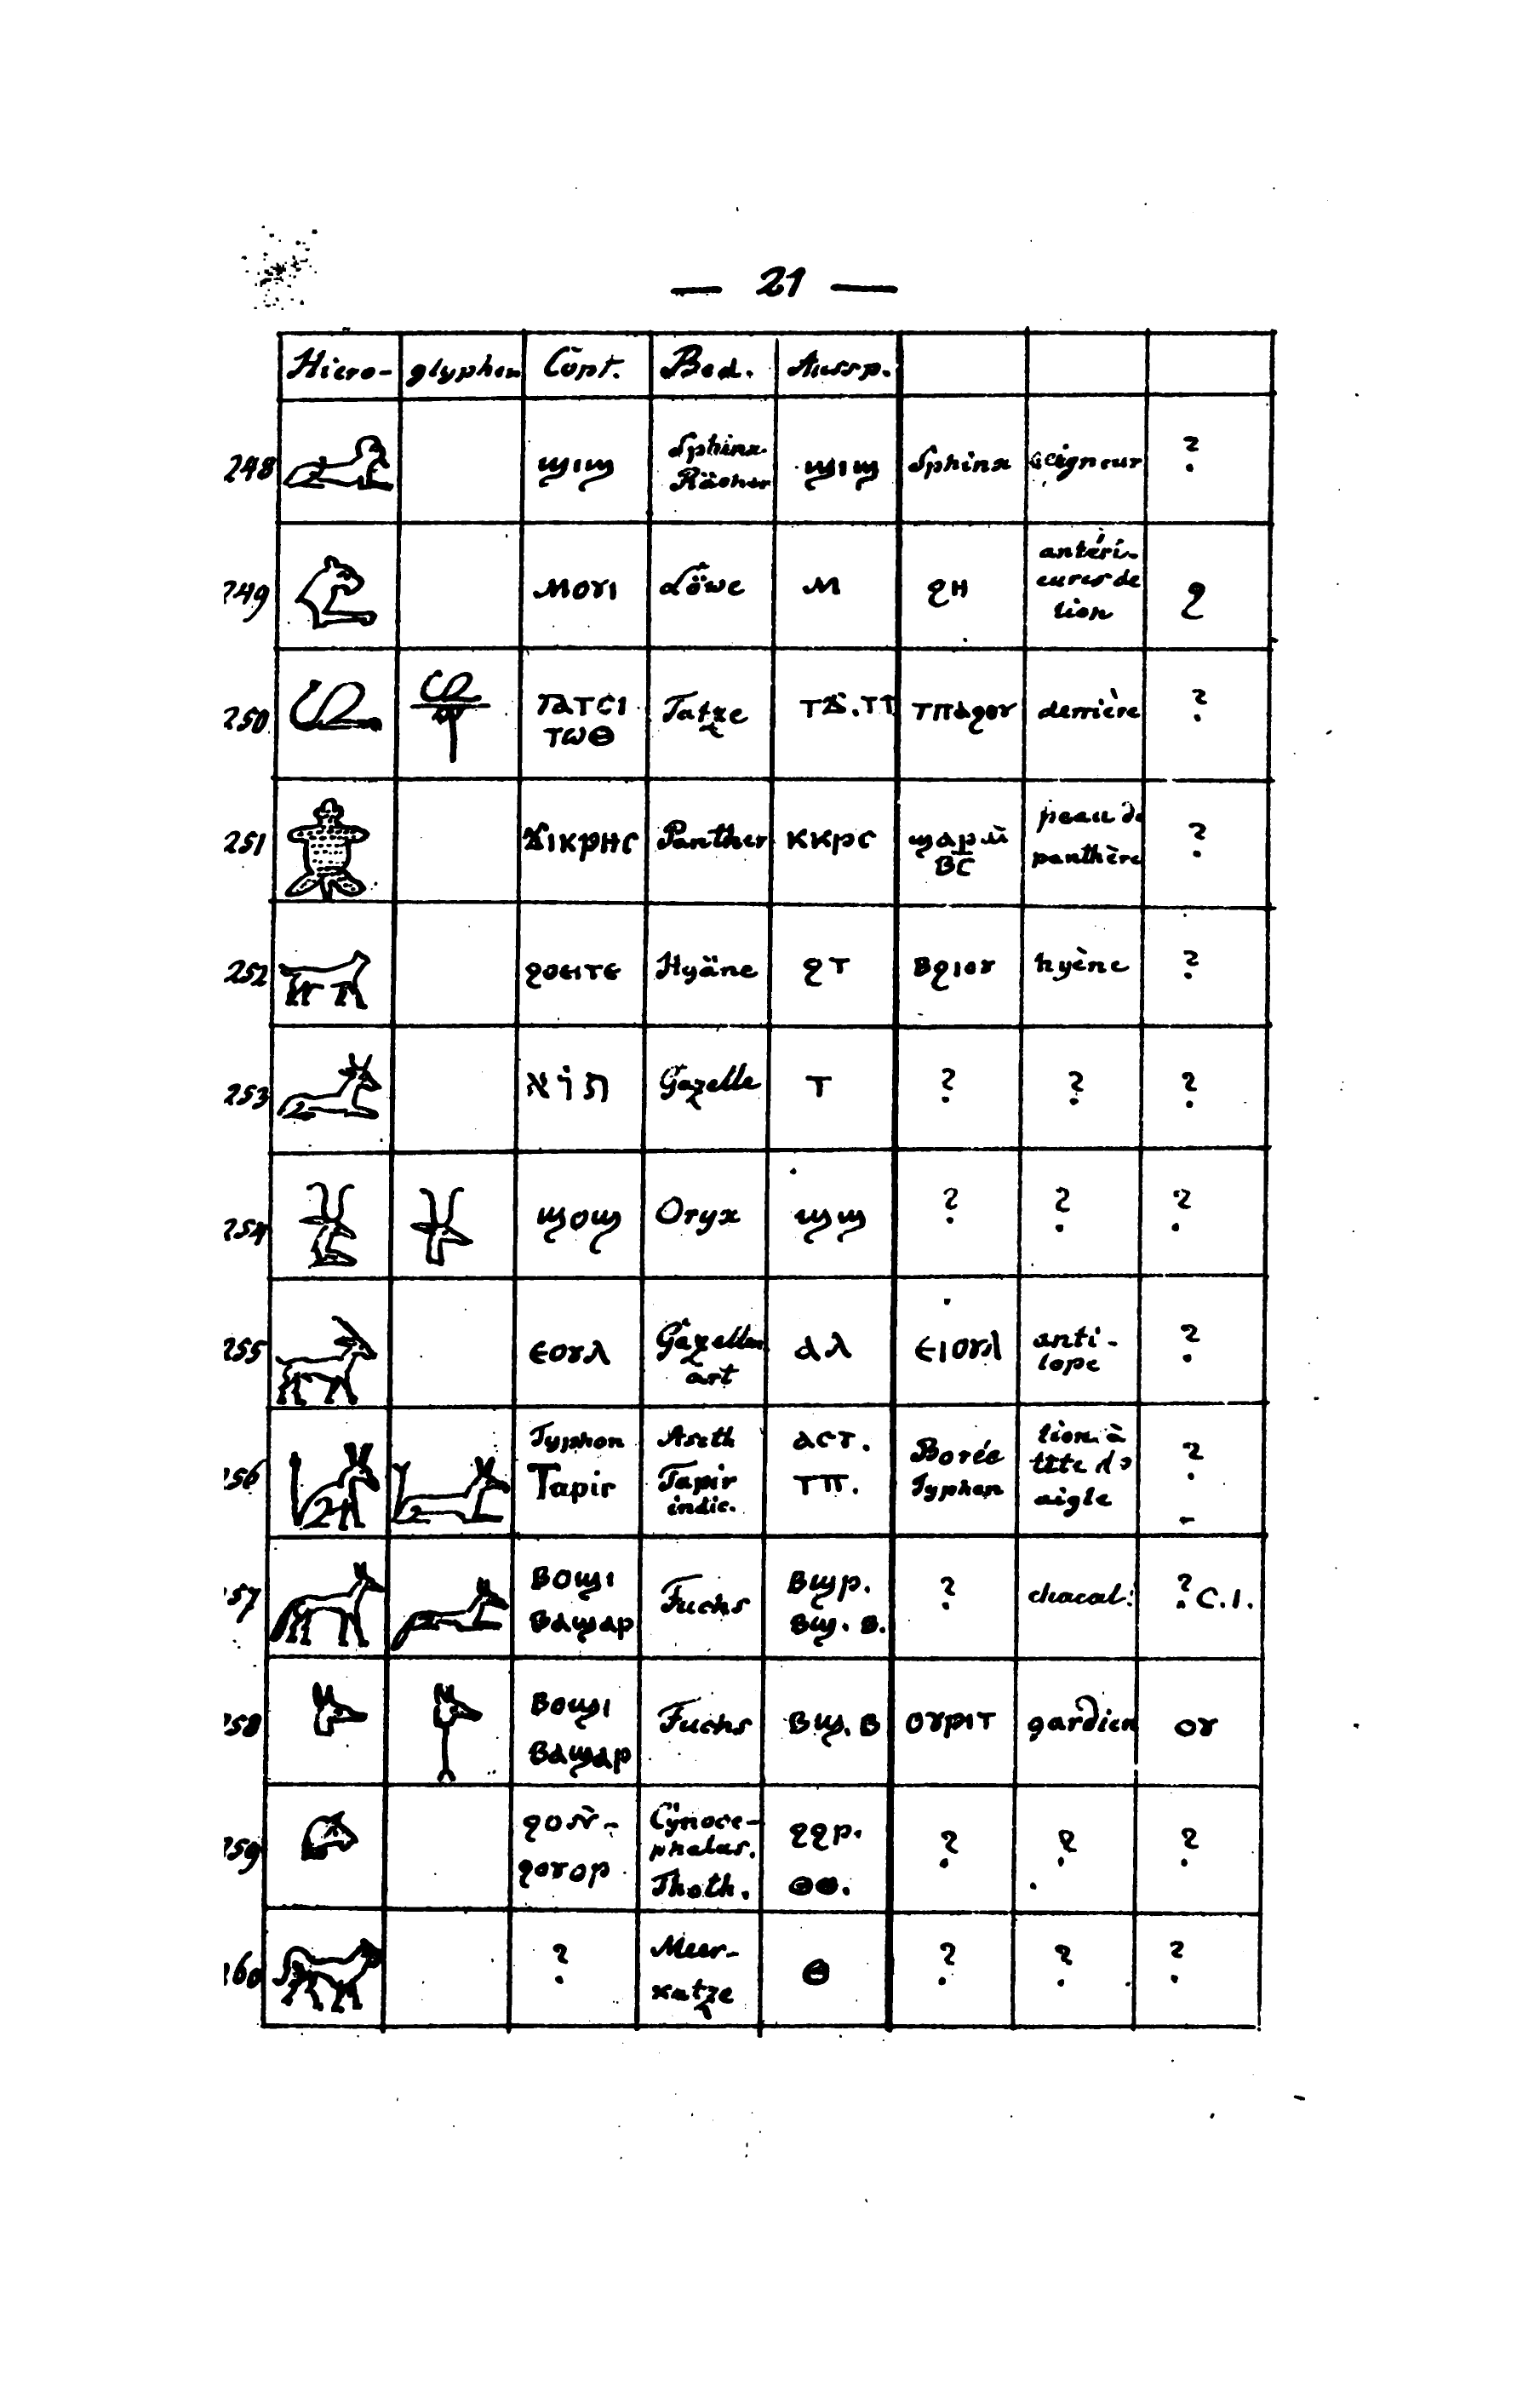 — 21 —
Hiero- glyphen Copt. Bed. Aussp.
248 ϣιϣ Sphinx. Rächer ϣιϣ Sphinx seigneur ?
249 ⲙⲟⲩⲓ Löwe ⲙ ϩⲏ antéri- eures de lion ϩ
250 ⲡⲁⲧⲥⲓ ⲧⲱⲑ Tatze ⲧⲡⲁϩⲟⲩ derrière ?
251 ϪⲓⲕⲣⲏⲤ Panther ⲕⲕⲣⲥ peau de panthère ?
252 ϩⲟⲉⲓⲧⲉ Hyäne ϩⲧ ⲃϩⲓⲟⲩ hyène ?
253 תוֹא Gazelle ⲧ ? ? ?
254 ϣⲟϣ Oryx ϣϣ ? ? ?
255 ⲉⲟⲩⲗ Gazellen art ⲁⲗ ⲉⲓⲟⲩⲗ anti- lope ?
256 Typhon Tapir Aseth Tapir indic. ⲁⲥⲧ. ⲧⲡ. Borée Typhon lion à tête d' aigle ?
257 ⲃⲟϣⲓ ⲃⲁϣⲁⲣ Fuchs ⲃϣⲣ. ⲃϣ. ⲃ. ? chacal ? C.1.
258 ⲃⲟϣⲓ ⲃⲁϣⲁⲣ Fuchs ⲃϣ. ⲃ ⲟⲩⲣⲓⲧ gardien ⲟⲩ
259 ϩⲟⲩϩⲟⲣ Cynoce- phalus. Thoth. ϩϩⲣ. ⲑⲑ. ? ? ?
260 ? Meer- katze ⲑ ? ? ?